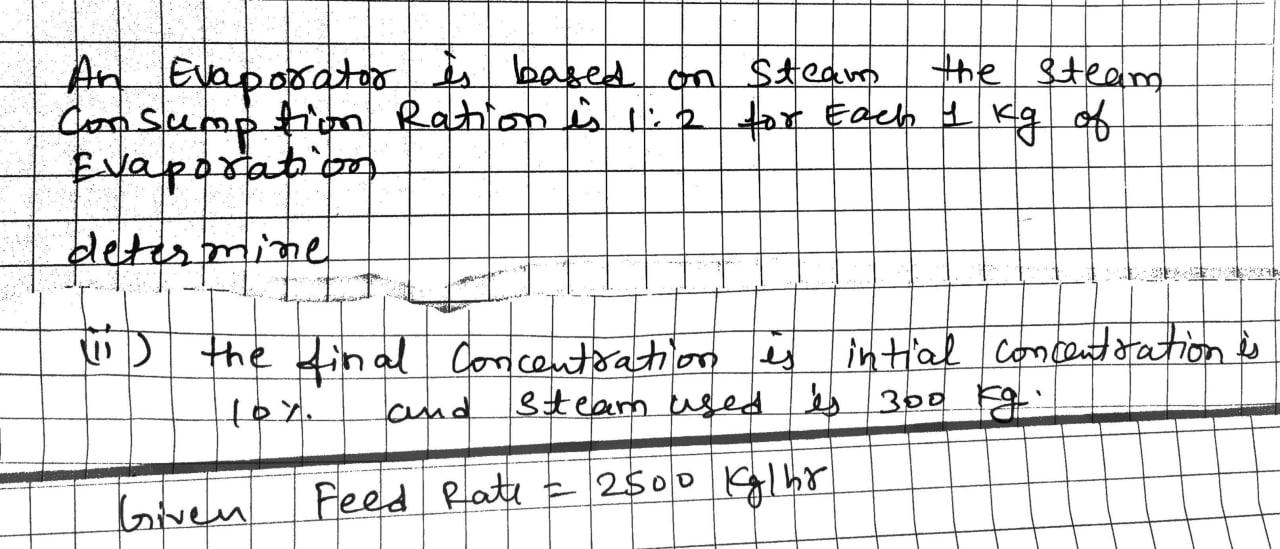 An Evaporator is based on Steam the steam
Consumption Ration is 1:2 for Each 1 kg of
Evaporation
determine
(ii) the final Concentration is intial concentration is
10%. and steam used is 300 kg.
Given Feed Rate = 2500 Kg/hr